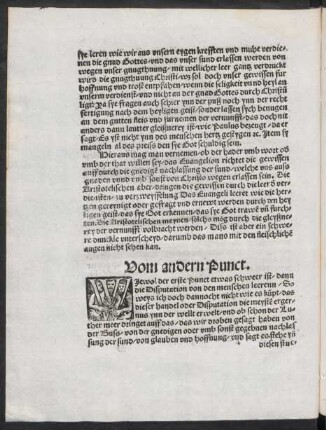 sye leren wie wir aus unsern eygen krefften und muhe verdie-
nen die gnad Gottes und das unser sund erlassen werden von
wegen unser gnugthnung mit wellicher leer gantz verdruckt
wird die gnugthuung Christi wo sol doch unser gewissen fur
hoffnung und trost empfahen wenn die seligkeit und heyl an
unserm verdienst und nicht an der gnad Gottes durch Christu
ligt Ja sye fragen auch schier ynn der puß noch ynn der recht
fertigung nach dem heyligen geist sonder lassen sych benugen
an dem guten fleis und furnemen der vernunfft das doch nit
anders dann lautter gleißnerey ist wie Paulus bezeugt da er
sagt Es ist nicht ynn des menschen hertz gestygen ꝛc. Item sy
mangeln al des preiß den sye Got schuldig sein.
Hieraus mag man vernemen ob der hader umb wort ob
umb der that willen sey das Euangelion richtet die gewissen
auff durch die gnedige nachlassung der sund welche uns aus
gnaden unnd umb sonst von Christo wegen erlassen sein. Die
Aristotelischen aber dringen die gewissen durch die leer
zu verzweyfflung Das Euangeli leeret wie die her-
tzen gereyniget oder gefegt und erneuet werden durch den hey
ligen geist das sye Got erkennen das sye Got trawe un furch-
ten. Die Aristotelischen meynen sölichs mög durch die gleyßne-
rey der vernunfft volbracht werden Diß ist aber ein schwe-
re dunckle underscheyd darumb das mans mit den fleischliche
augen nicht sehen kan.
Vom andern Punct.
WJewol der erste Punct etwas schweer ist dann
die Disputation von den menschen leeren So
weyß ich doch dannocht nicht wie es kupt das
dieser handel oder Disputation die meyste erger-
nus ynn der wellt erwelt und ob schon der Lu-
ther meer dringet auff das das wir droben gesagt haben von
der Buß von der gnedigen oder umb sonst gegebnen nachlas
sung der sund von glauben und hoffnung und sagt es stehe yn
diesen stuc-